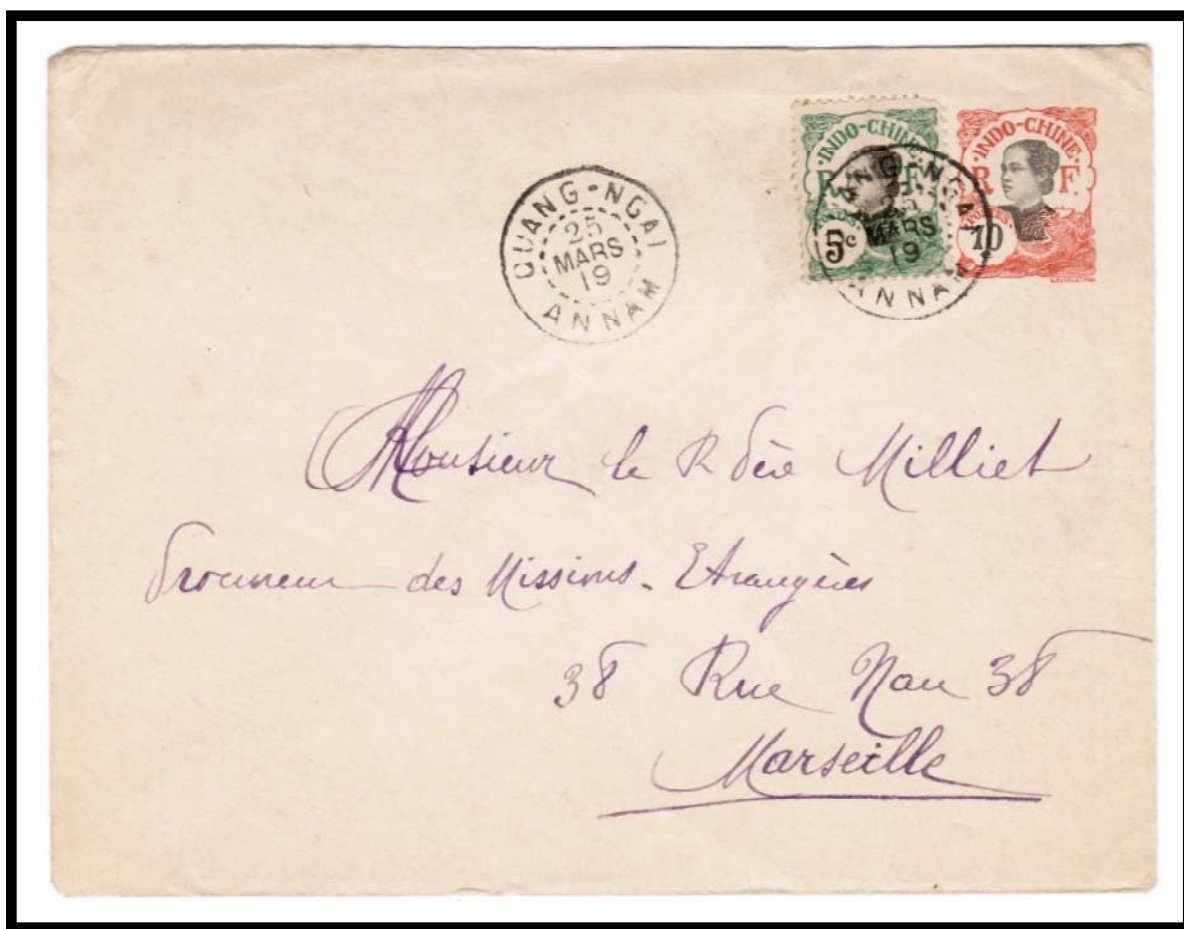 QUANG-NGAI
25
MARS
19
ANNAM
INDO-CHINE
R F
5c
ANG-NGAI
MARS
19
ANNAM
INDO-CHINE
R F.
POSTES
10
Monsieur le R Père Milliet
Procureur des Missions-Etrangères
38 Rue Nau 38
Marseille